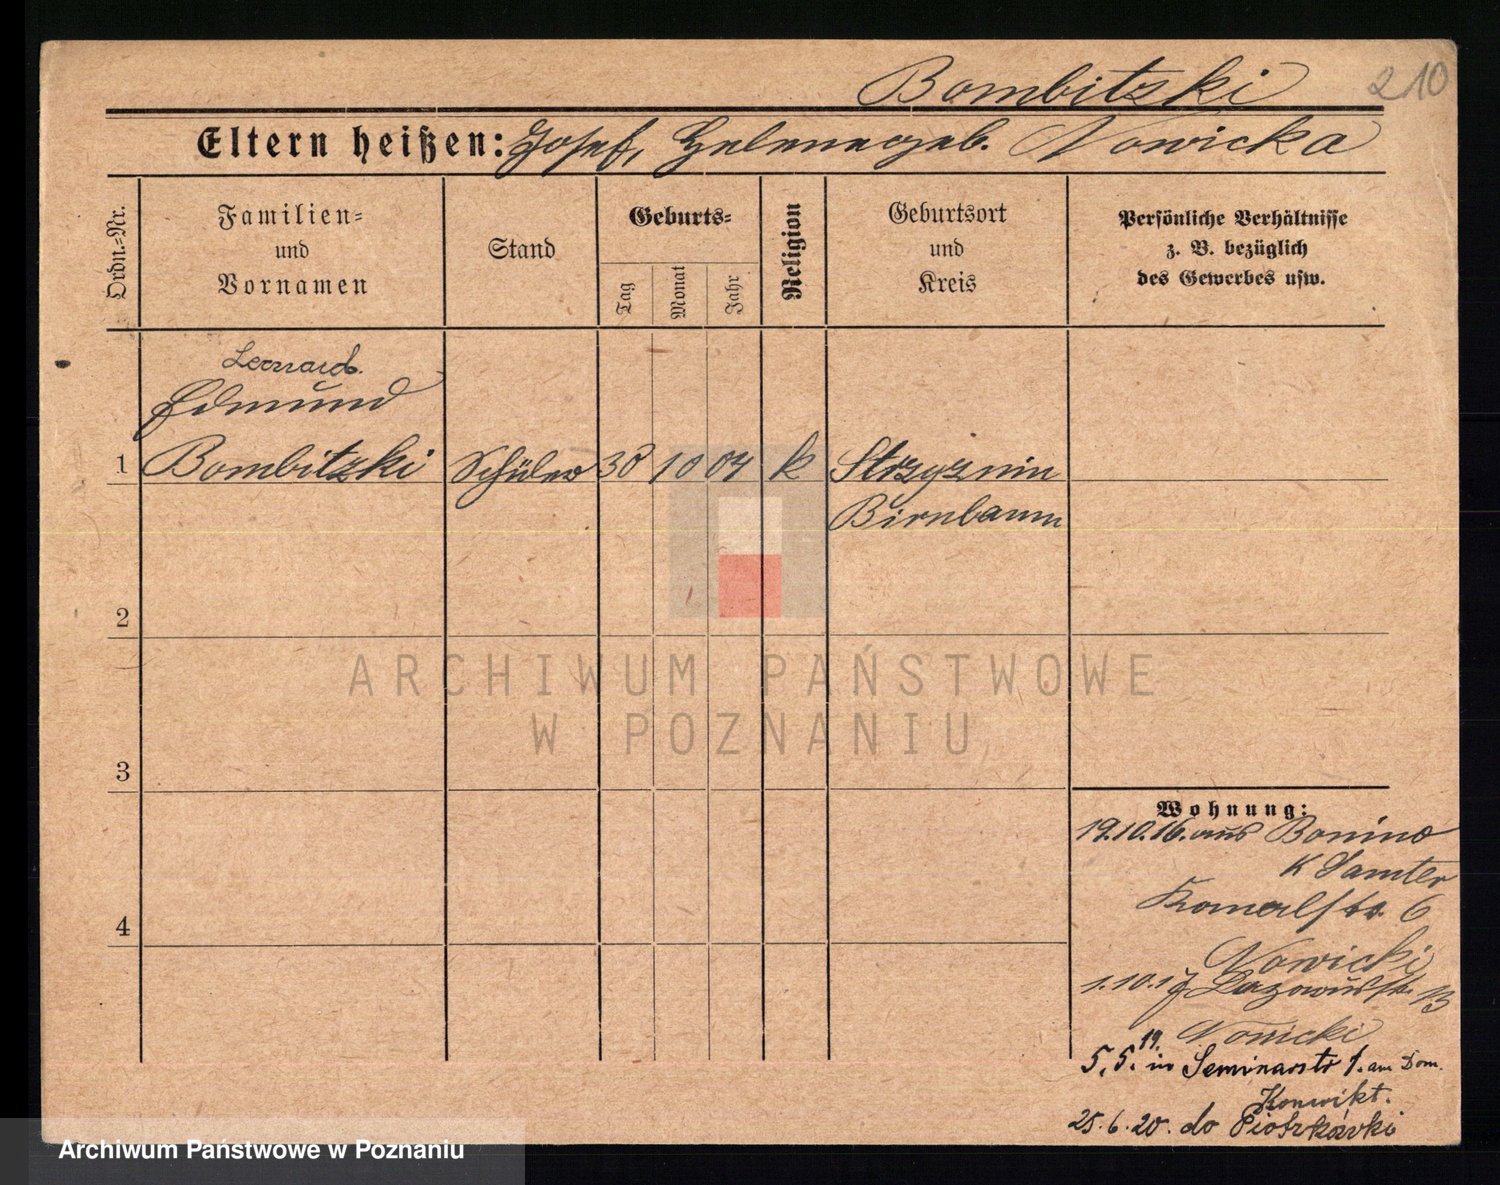 Bombitzki
210
Eltern heißen: Josef, Helene geb. Nowicka
Ordn.-Nr.
Familien-
und
Vornamen
Stand
Geburts-
Tag
Monat
Jahr
Religion
Geburtsort
und
Kreis
Persönliche Verhältnisse
z. B. bezüglich
des Gewerbes usw.
Leonard
Edmund
1 Bombitzki Schüler 30 10 04 k Strzyzmin
Birnbaum
2
3
4
ARCHIWUM PAŃSTWOWE
W POZNANIU
Wohnung:
19.10.16. aus Bonino
K Samter
6
Nowicki
1.10.17 13
Nowicki
5.5.19. in Seminarstr 1. am Dom.
Konwikt.
25.6.20. do Piotrkówki
Archiwum Państwowe w Poznaniu